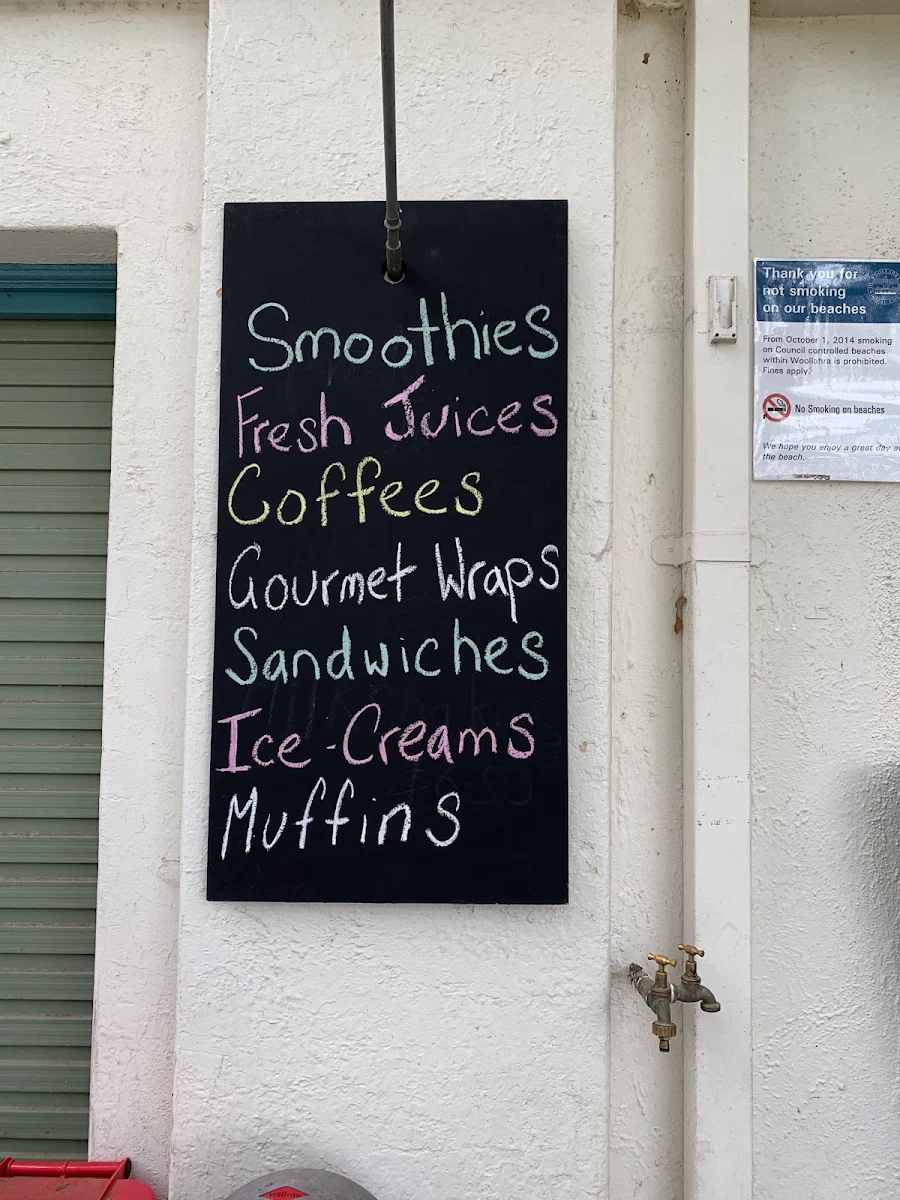 Smoothies
Fresh Juices
Coffees
Gourmet Wraps
Sandwiches
Ice-Creams
Muffins
Thank you for
not smoking
on our beaches
From October 1, 2014 smoking
on Council controlled beaches
within Woollahra is prohibited.
Fines apply.
No Smoking on beaches
We hope you enjoy a great day at
the beach.
willow